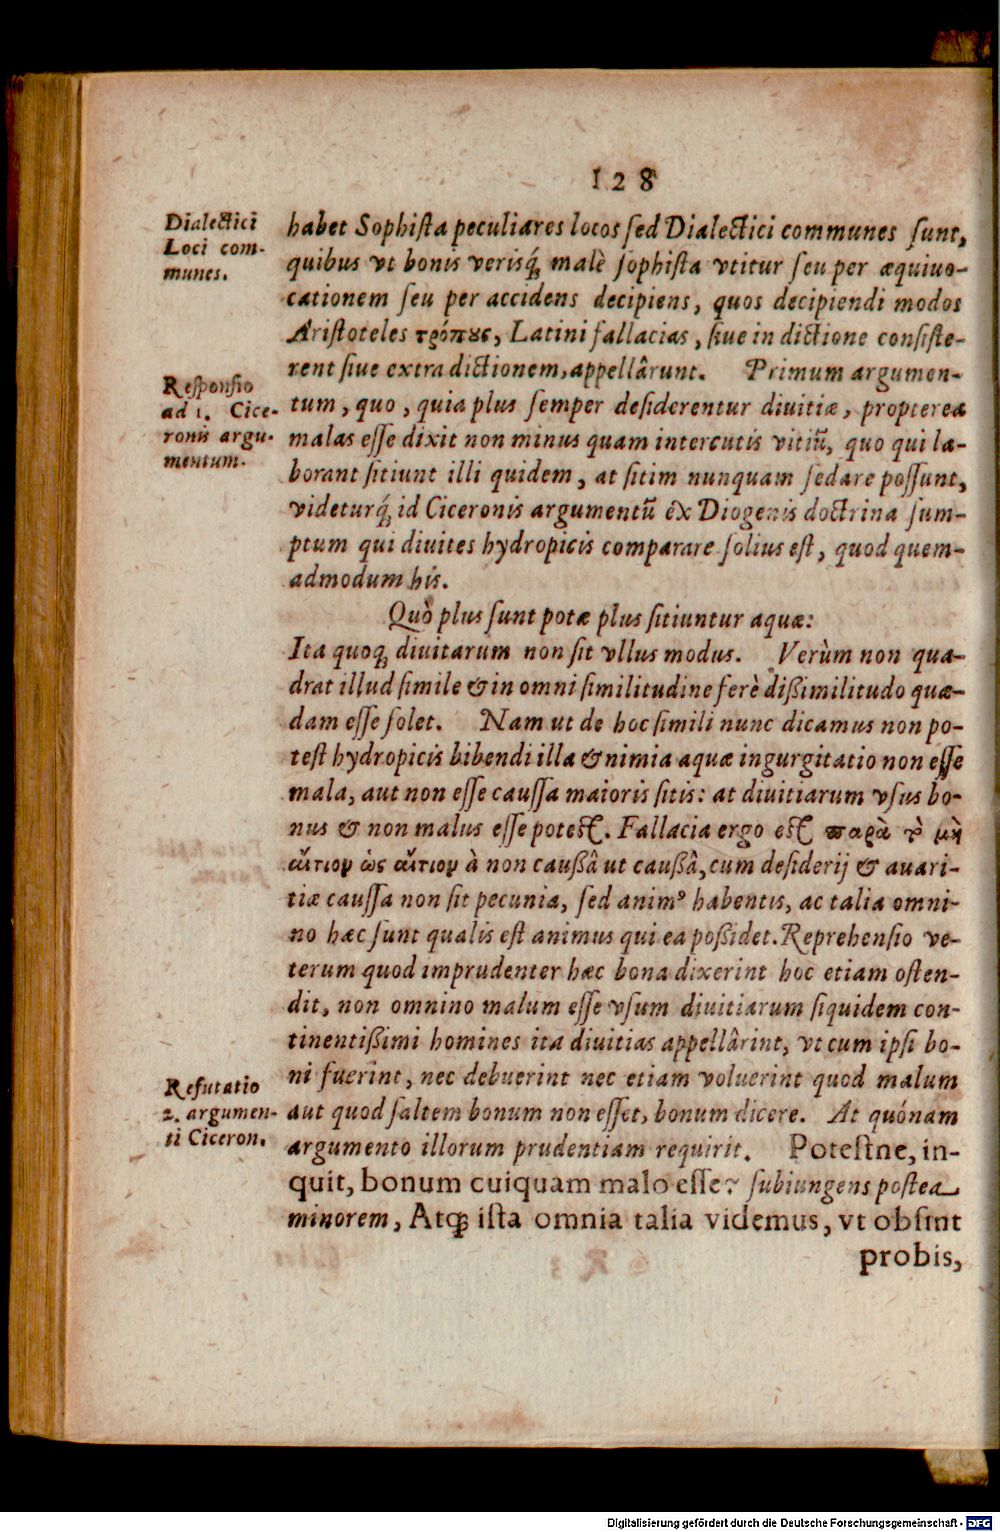 128
Dialectici
Loci com-
munes.
habet Sophista peculiares locos sed Dialectici communes sunt,
quibus vt bonis verisq́; malè sophista vtitur seu per æquiuo-
cationem seu per accidens decipiens, quos decipiendi modos
Aristoteles τρόπους, Latini fallacias, siue in dictione consiste-
rent siue extra dictionem, appellârunt. Primum argumen-
Responsio
ad 1. Cice-
ronis argu-
mentum.
tum, quo, quia plus semper desiderentur diuitiæ, propterea
malas esse dixit non minus quam intercutis vitiũ, quo qui la-
borant sitiunt illi quidem, at sitim nunquam sedare possunt,
videturq́; id Ciceronis argumentũ ex Diogenis doctrina sum-
ptum qui diuites hydropicis comparare solius est, quod quem-
admodum his.
Quò plus sunt potæ plus sitiuntur aquæ:
Ita quoq; diuitarum non sit vllus modus. Verùm non qua-
drat illud simile & in omni similitudine ferè dißimilitudo quæ-
dam esse solet. Nam ut de hoc simili nunc dicamus non po-
test hydropicis bibendi illa & nimia aquæ ingurgitatio non esse
mala, aut non esse caussa maioris sitis: at diuitiarum vsus bo-
nus & non malus esse potest. Fallacia ergo est παρὰ τὸ μὴ
αἴτιον ὡς αἴτιον à non caußâ ut caußâ, cum desiderij & auari-
tiæ caussa non sit pecunia, sed animꝰ habentis, ac talia omni-
no hæc sunt qualis est animus qui ea poßidet. Reprehensio ve-
terum quod imprudenter hæc bona dixerint hoc etiam osten-
dit, non omnino malum esse vsum diuitiarum siquidem con-
tinentißimi homines ita diuitias appellârint, vt cum ipsi bo-
ni fuerint, nec debuerint nec etiam voluerint quod malum
Refutatio
2. argumen-
ti Ciceron.
aut quod saltem bonum non esset, bonum dicere. At quónam
argumento illorum prudentiam requirit. Potestne, in-
quit, bonum cuiquam malo esse? subiungens postea
minorem, Atq; ista omnia talia videmus, vt obsint
probis,
Digitalisierung gefördert durch die Deutsche Forschungsgemeinschaft - DFG